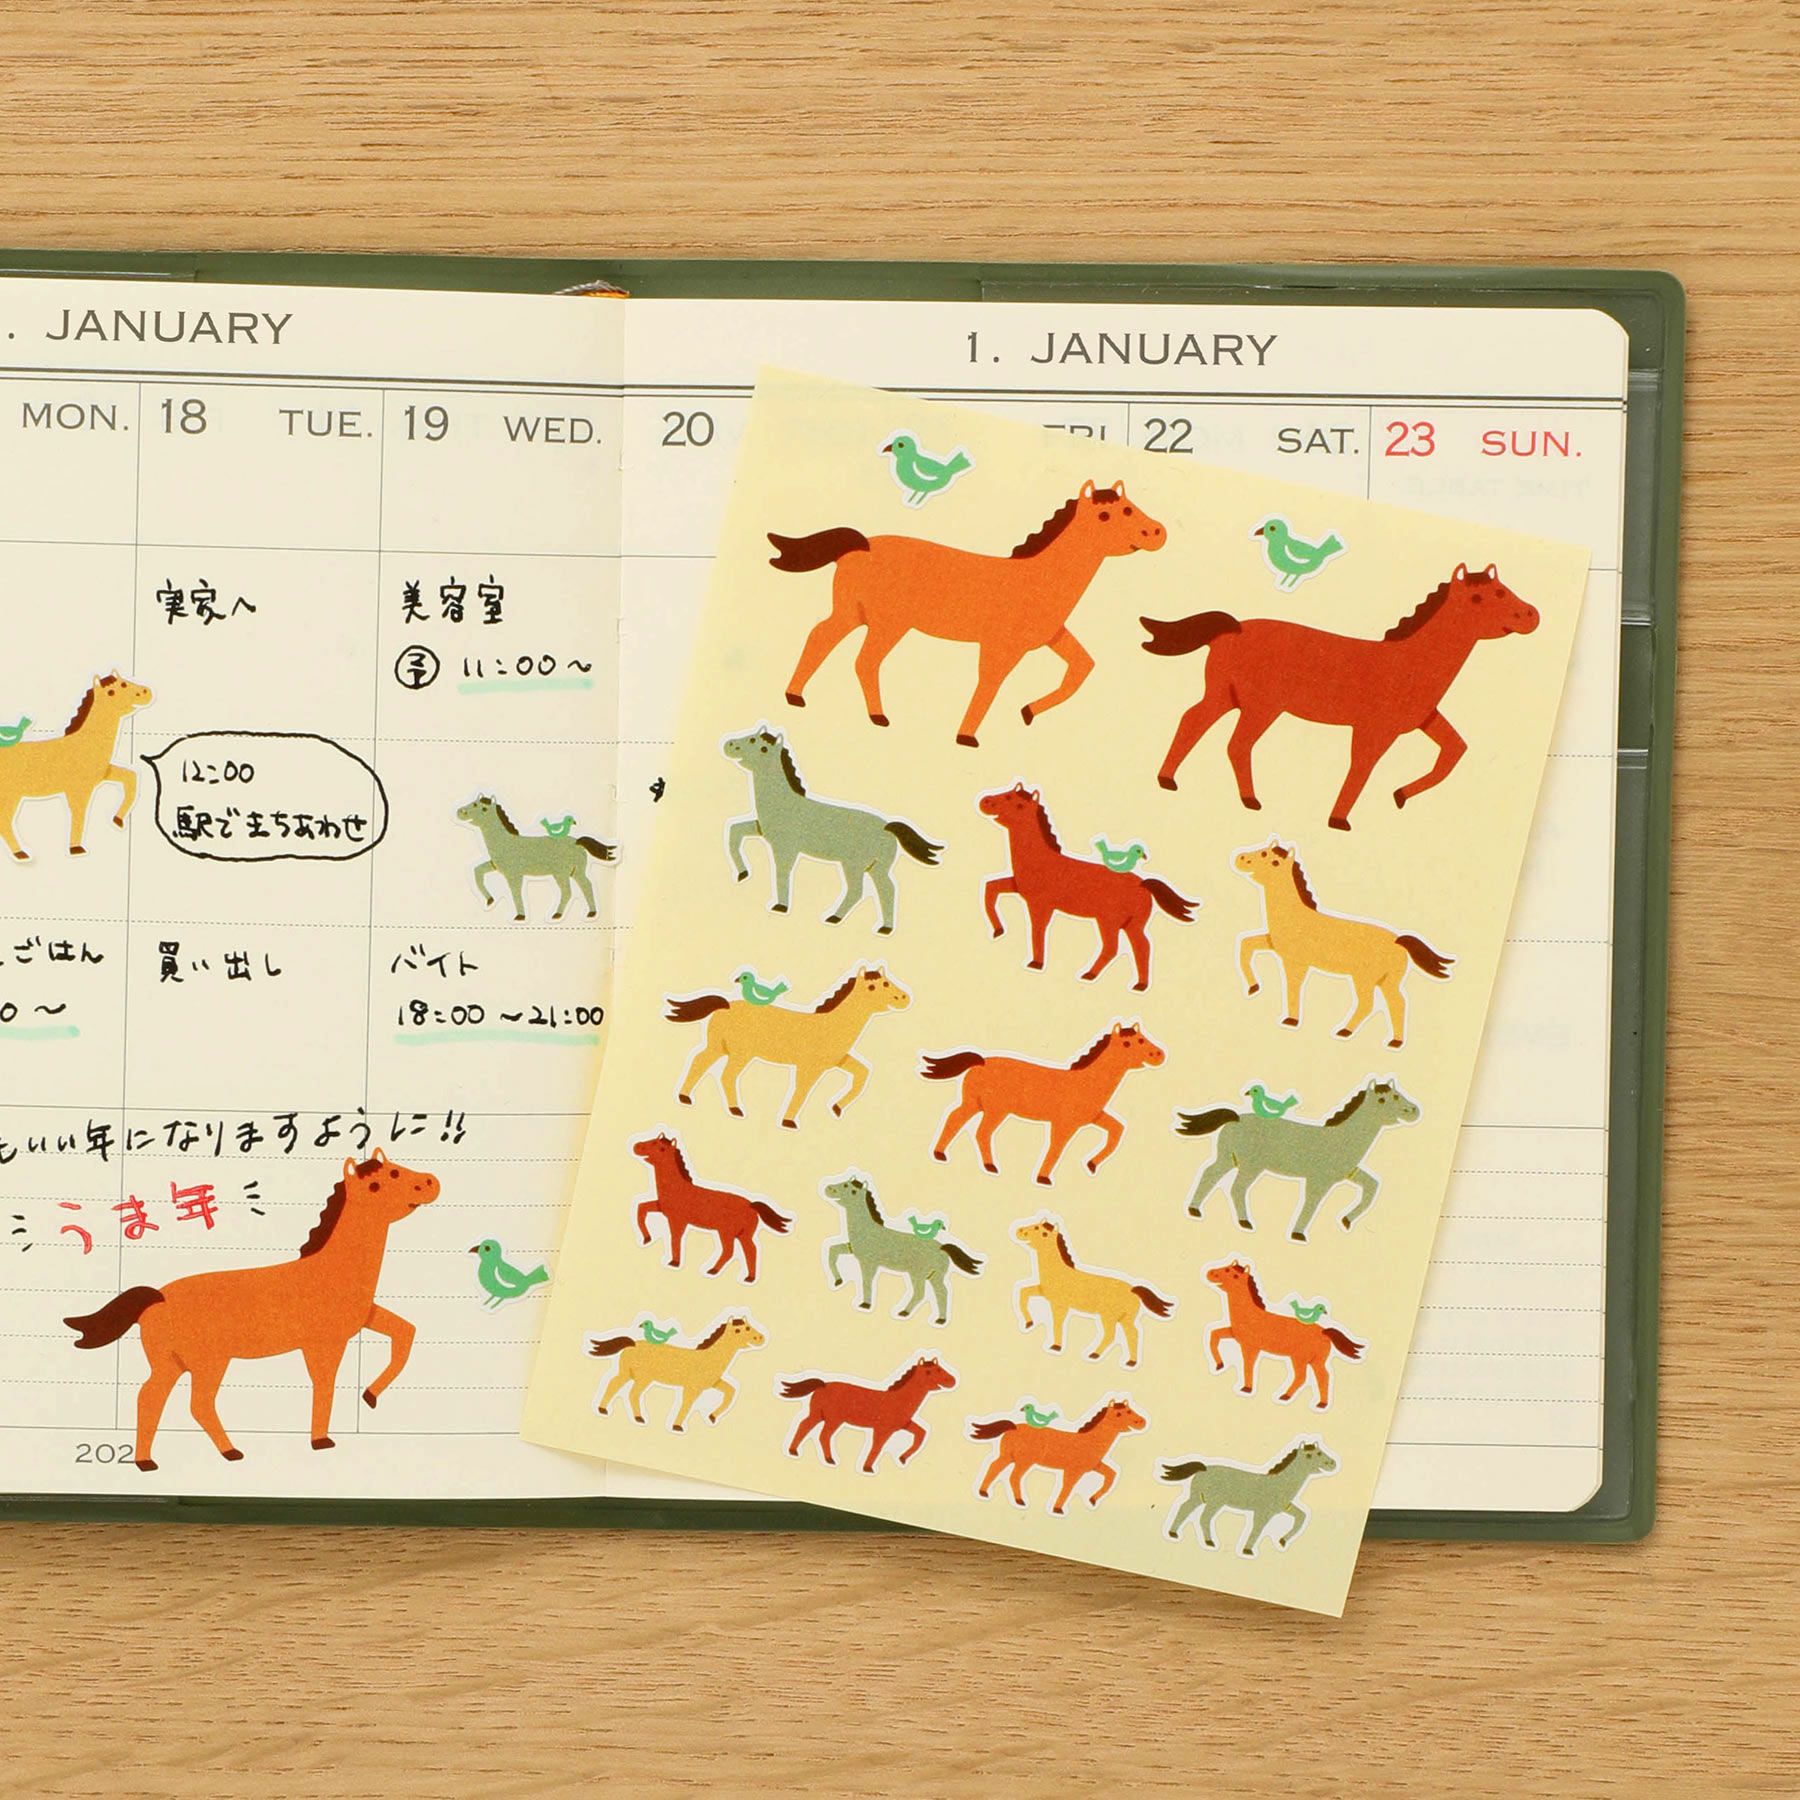 . JANUARY
1. JANUARY
MON.
18 TUE.
19 WED.
20
FRI
22 SAT.
23 SUN.
実家へ
美容室
予 11:00〜
12:00
駅でまちあわせ
ごはん
0〜
買い出し
バイト
18:00〜21:00
もいい年になりますように!!
うま年
202